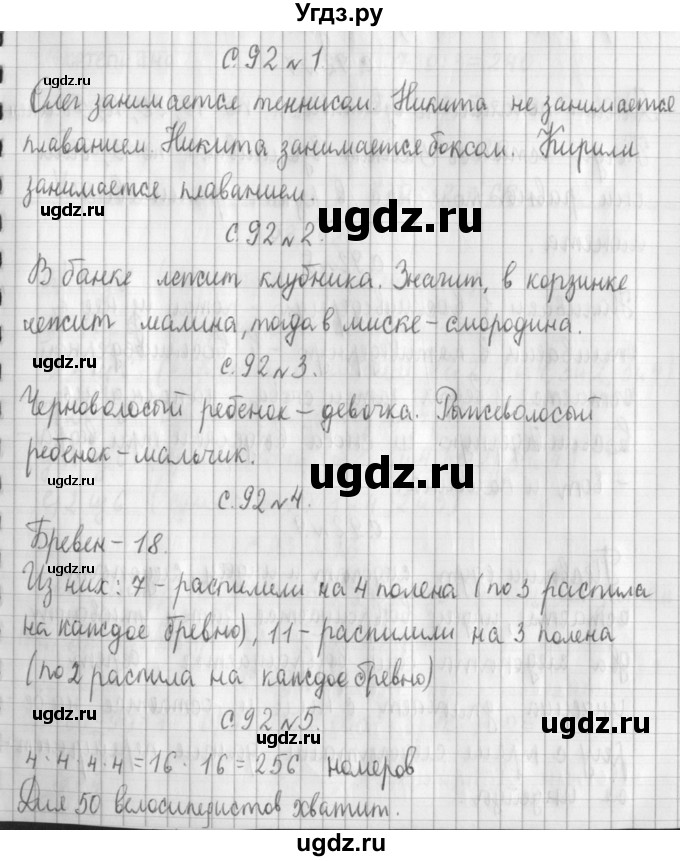 Угдз.ру
с. 92 № 1.
ugdz.ru
Олег занимается теннисом. Никита не занимается
плаванием. Никита занимается боксом. Кирилл
занимается плаванием.
ugdz.ru
ugdz.ru
с. 92 № 2.
В банке лежит клубника. Значит, в корзинке
лежит малина, тогда в миске - смородина.
ugdz.ru
с. 92 № 3.
Черноволосый ребенок - девочка. Рыжеволосый
ребенок - мальчик.
ugdz.ru
ugdz.ru
с. 92 № 4.
Бревен - 18.
ugdz.ru
Из них: 7 - распилили на 4 полена (по 3 распила
на каждое бревно), 11 - распилили на 3 полена
(по 2 распила на каждое бревно)
ugdz.ru
с. 92 № 5.
ugdz.ru
4 · 4 · 4 · 4 = 16 · 16 = 256 номеров
Для 50 велосипедистов хватит.
ugdz.ru